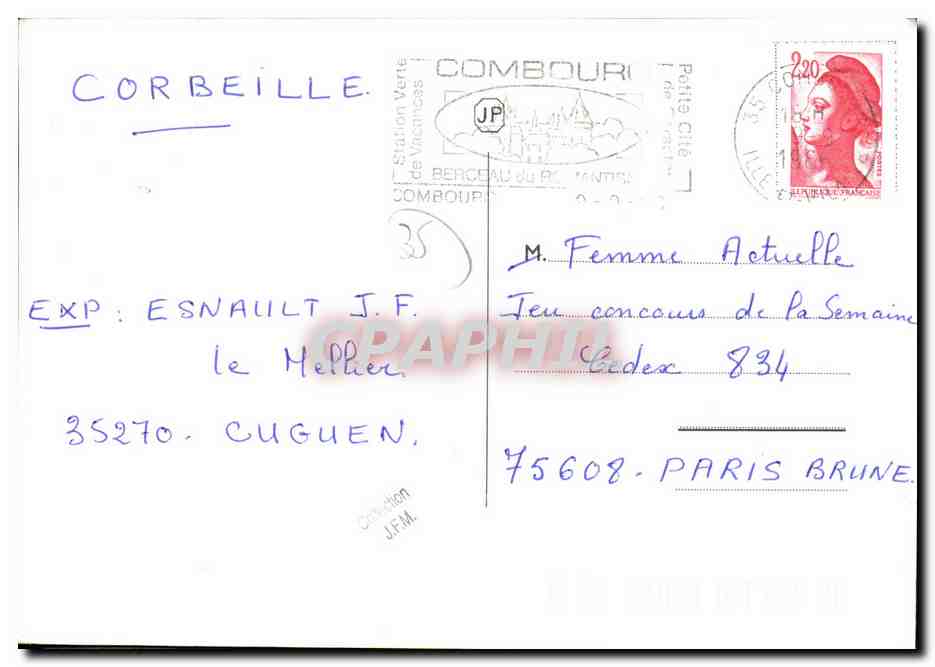 CORBEILLE.
EXP : ESNAULT J.F.
le Mellier
35270 - CUGUEN.
35
Collection
J.F.M.
Station Verte
de Vacances
COMBOURG
JP
BERCEAU du
COMBOURG
Petite Cité
2,20
REPUBLIQUE FRANCAISE
POSTES
35
ILLE
18 H
M. Femme Actuelle
Jeu concours de la Semaine
Cedex 834
75608 - PARIS BRUNE.
CPAPHIL